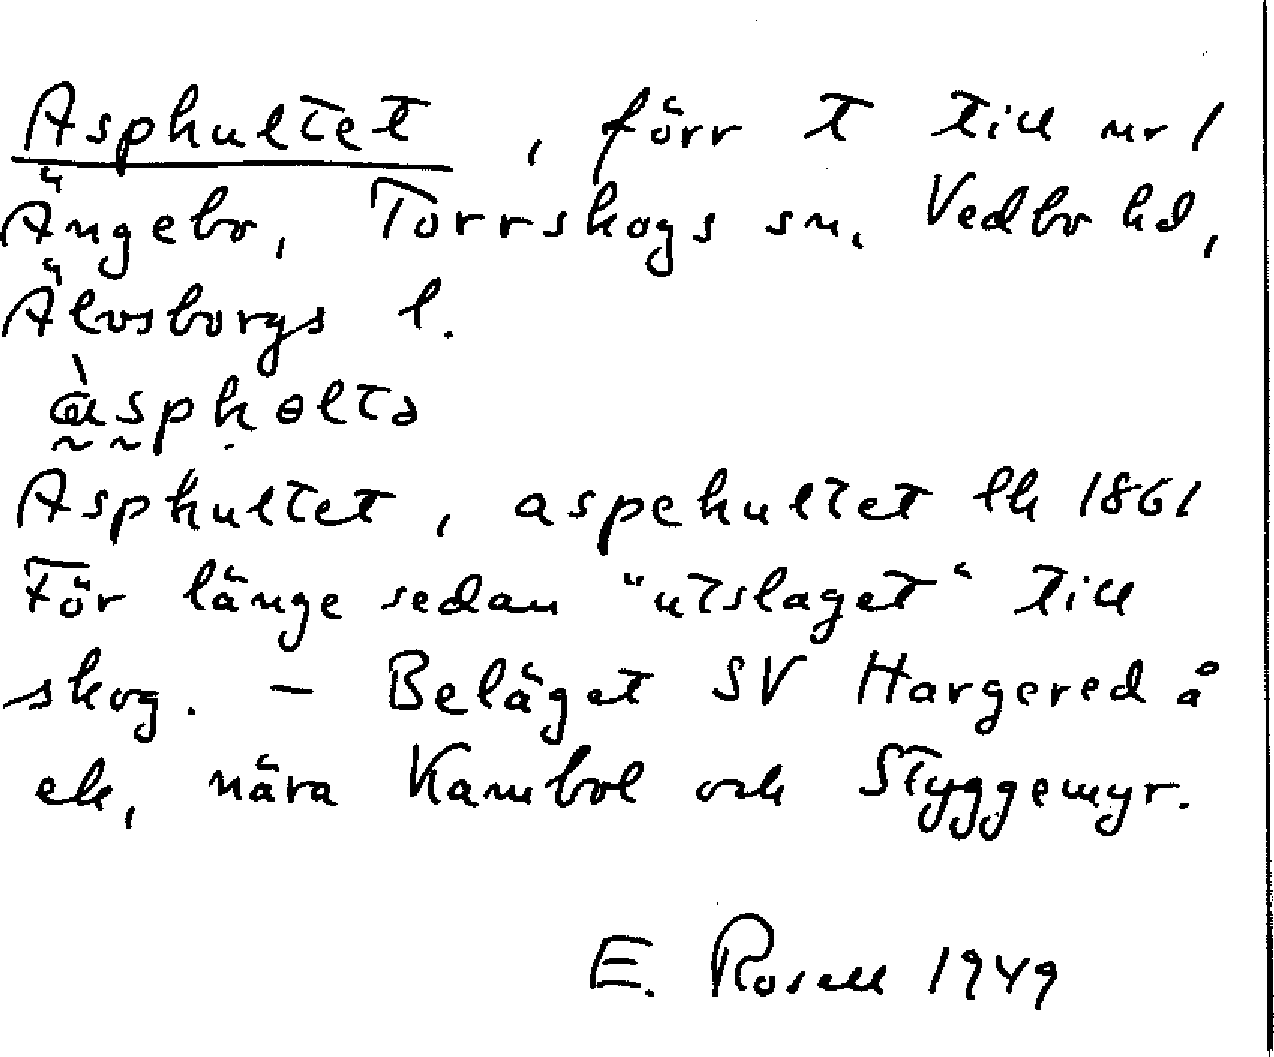 Asphultet, förr t till nr 1
Ängebo, Torrskogs sn. Vedbo hd,
Älvsborgs l.
àspḥɵltə
Asphultet, aspehultet lh 1861
För länge sedan "utslaget" till
skog. – Beläget SV Hargered å
ek, nära Kambol och Styggemyr.
E. Rosell 1949